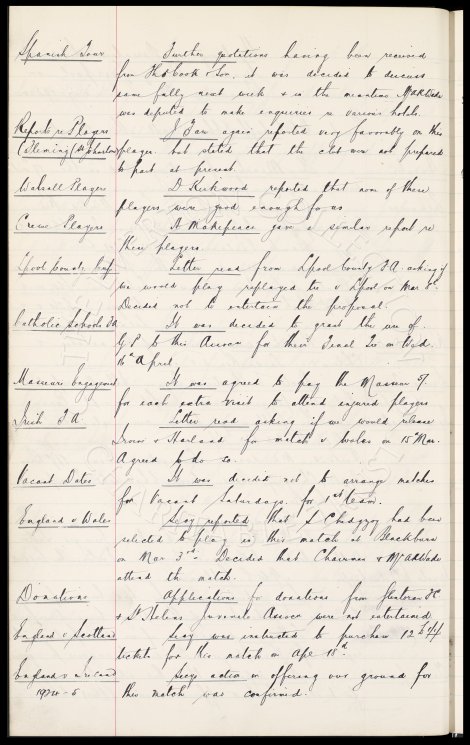 Spanish Tour Further quotations having been received
from Thos Cook & Son, it was decided to discuss
same fully next week & in the meantime Mr
was deputed to make enquiries re various hotels.
Reports re Players J Fare again reported very favorably on this
(Fleming (St Johnstone) player, but stated that the club were not prepared
to part at present.
Walsall Players D Kirkwood reported that none of these
players were good enough for us
Crewe Players H Makepeace gave a similar report re
these players.
Lpool County Cup Letter read from Lpool County FA asking if
we would play replayed tie v Lpool on Mar
Decided not to entertain the proposal.
Catholic Schools FA It was decided to grant the use of
G.P. to this Assocn for their Final Tie on Wed
16th April
Masseurs Engagement It was agreed to pay the Masseur 5/-
for each extra visit to attend injured players
Irish FA Letter read asking if we would release
Irvine & Harland for match v Wales on 15th Mar.
Agreed to do so.
Vacant Dates It was decided not to arrange matches
for Vacant Saturdays for 1st team.
England v Wales Secy reported that S Chedgzoy had been
selected to play in this match at Blackburn
on Mar 3rd. Decided that Chairman & Mr A Wade
attend the match.
Donations Applications for donations from Glentoran FC
& St Helens Juvenile Assocn were not entertained
England v Scotland Secy was instructed to purchase 12
tickets for this match on Apl
England v Ireland Secys action in offering our ground for
1924-5 this match was confirmed.